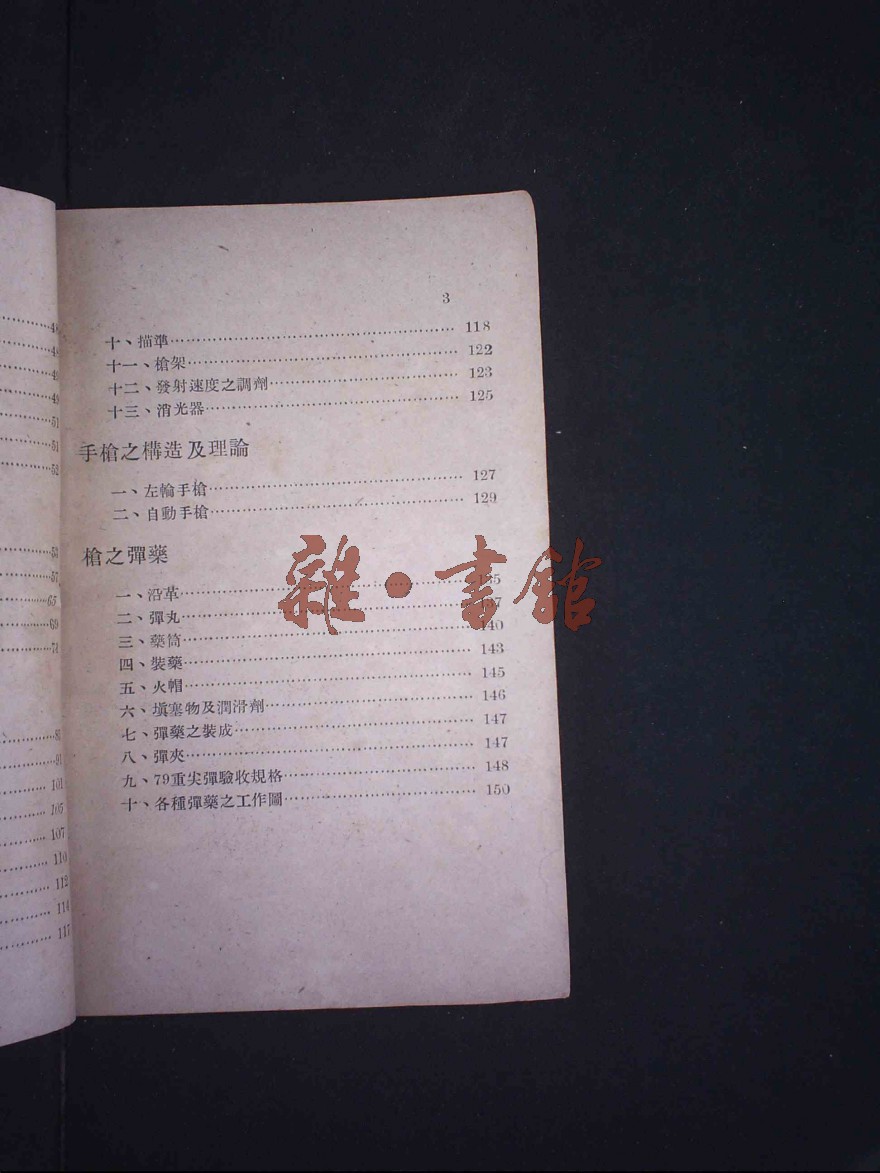 48
48
49
49
51
51
52
53
57
65
69
71
81
91
101
105
107
110
112
114
117
3
十、描準 118
十一、槍架 122
十二、發射速度之調劑 123
十三、消光器 125
手槍之構造及理論
一、左輪手槍 127
二、自動手槍 129
槍之彈藥
一、沿革 135
二、彈丸 137
三、藥筒 140
四、裝藥 143
五、火帽 145
六、塡塞物及潤滑劑 146
七、彈藥之裝成 147
八、彈夾 147
九、79重尖彈驗收規格 148
十、各種彈藥之工作圖 150
雜·書館